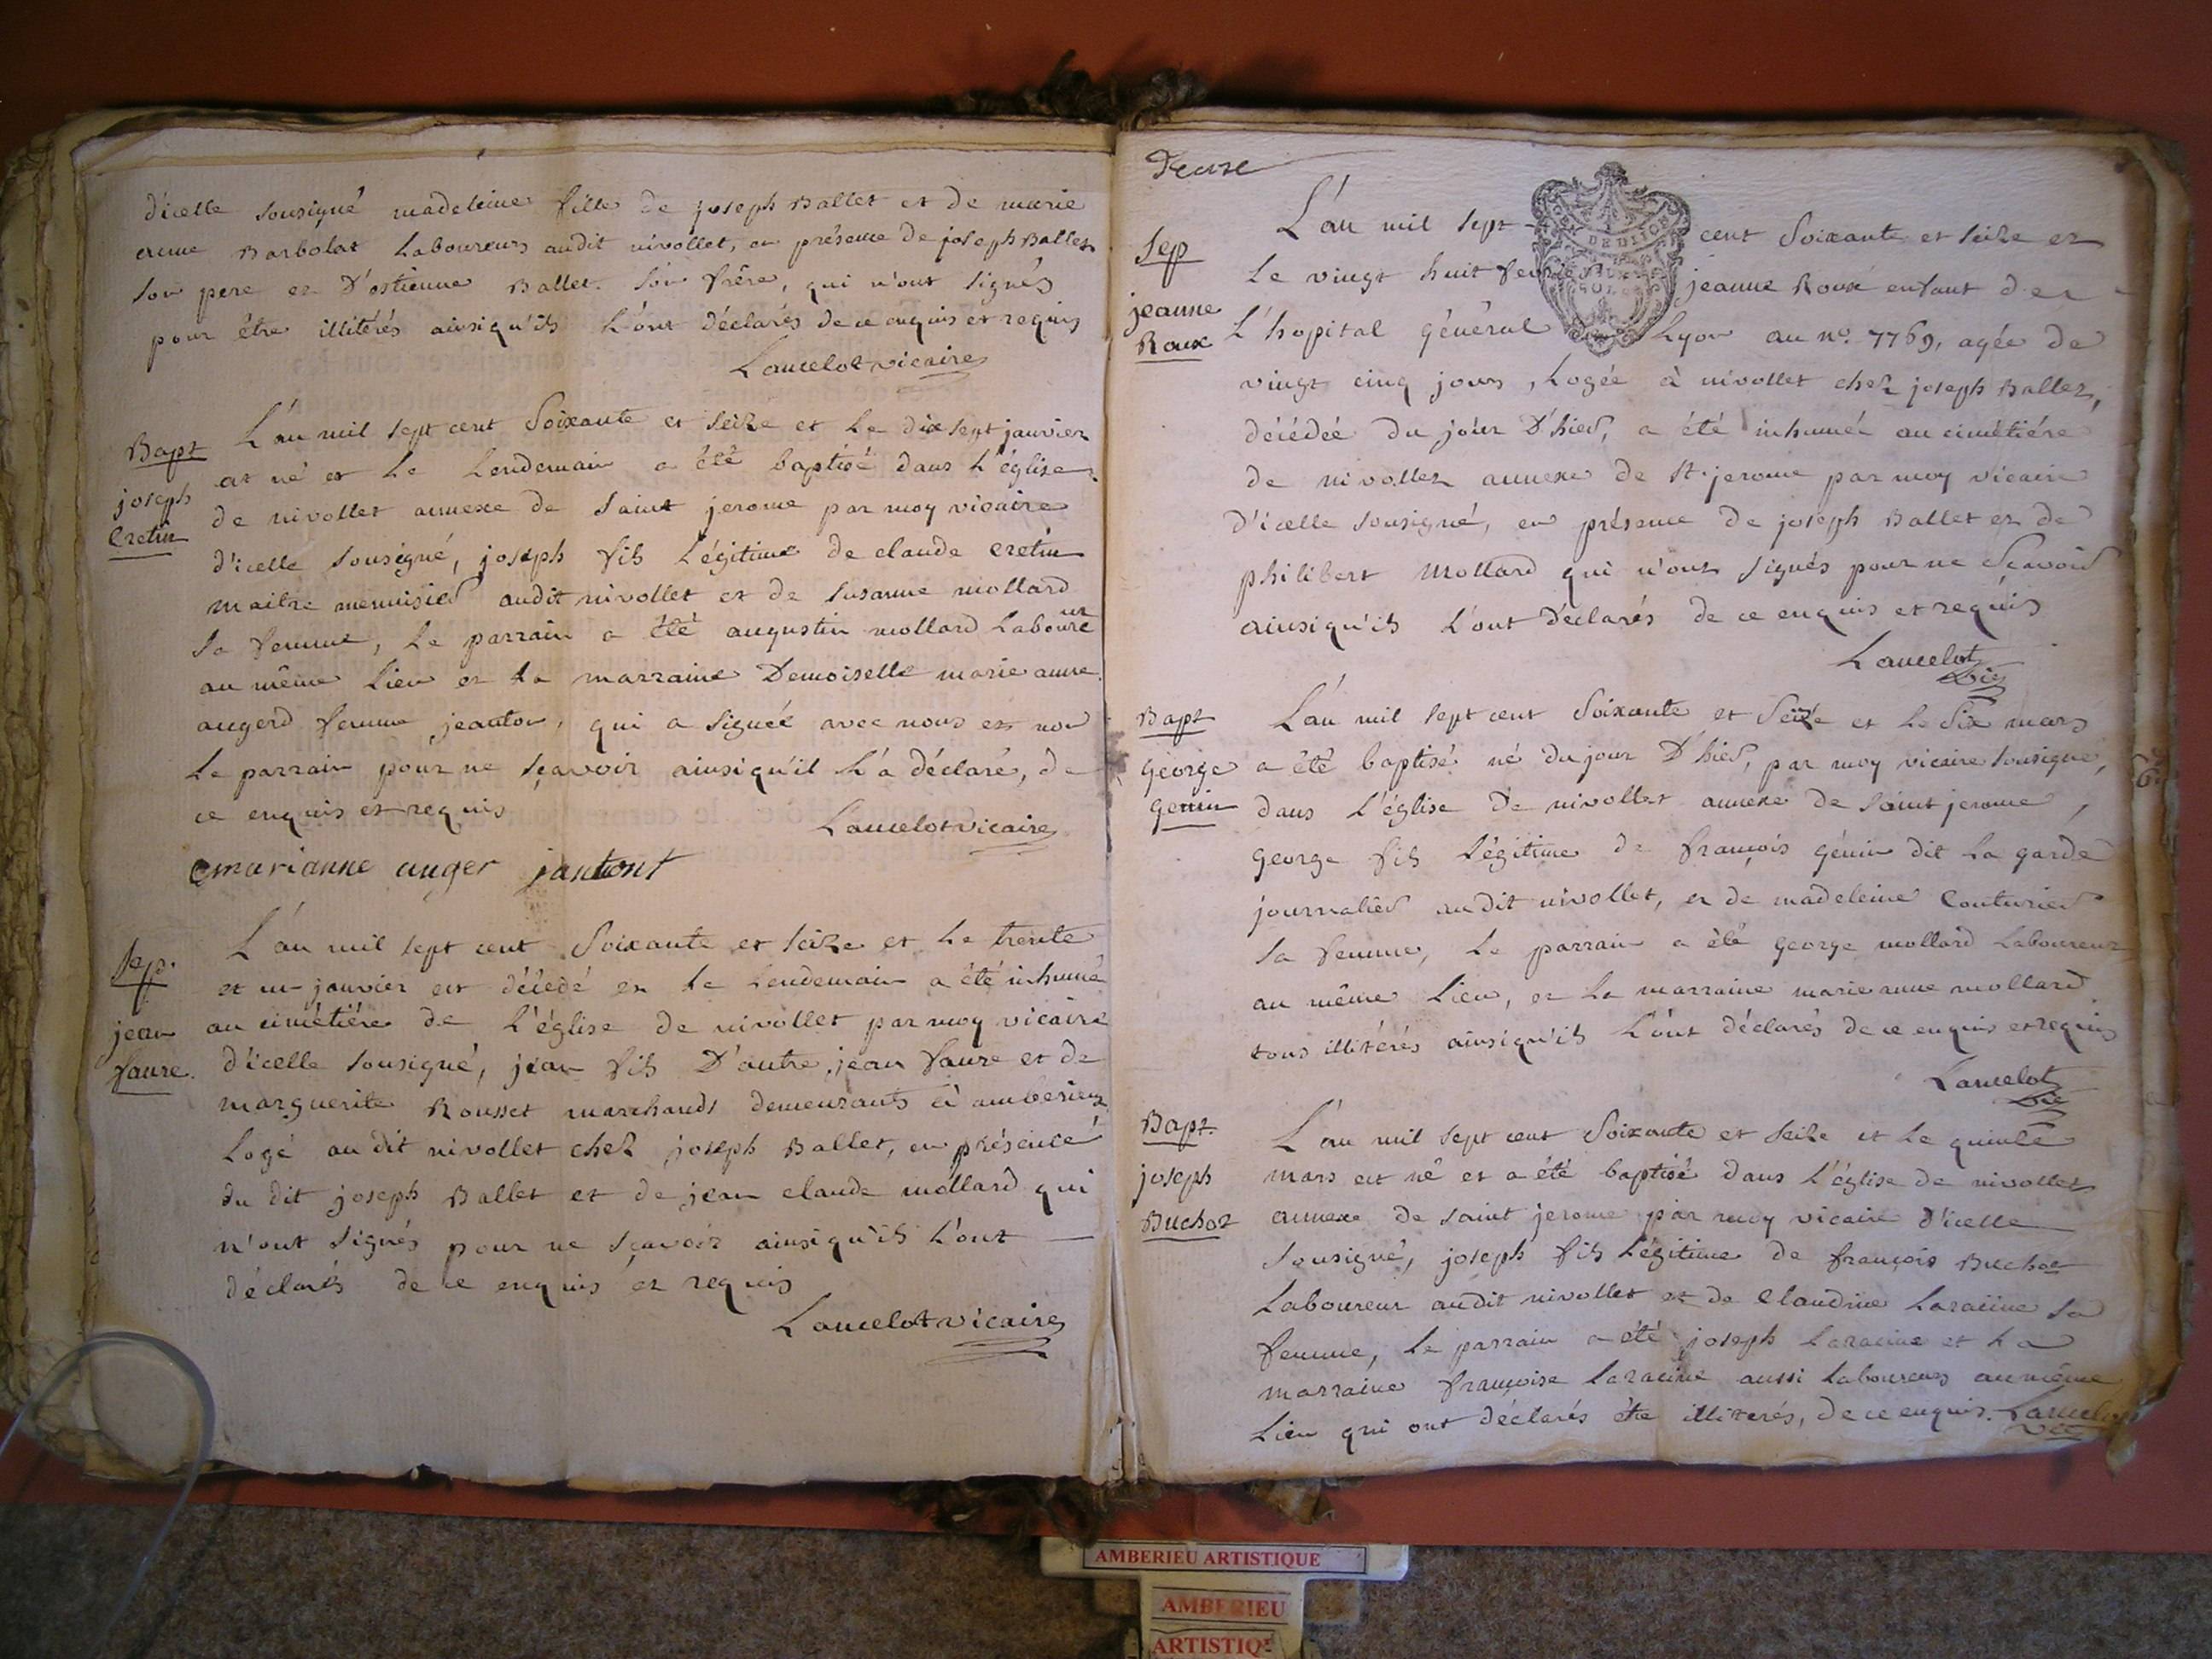 d'icelle sousigné madeleine fille de joseph Ballet et de marie
anne Barbolat Laboureurs audit nivollet, en présence de joseph Ballet
son pere et d'estienne Ballet son frère, qui n'ont signés
pour être illitérés ainsiqu'ils L'ont déclarés de ce enquis et requis
Lancelot vicaire
Bapt
joseph
Cretin
L'an mil sept cent Soixante et seize et Le dix sept janvier
est né et Le Lendemain a été baptisé dans L'église
de nivollet annexe de saint jerome par moy vicaire
d'icelle sousigné, joseph fils Légitime de claude cretin
maitre menuisier audit nivollet et de susanne mollard
sa femme, Le parrain a été augustin mollard Laboureur
au même Lieu et La marraine Demoiselle marie anne
augerd femme jeanton, qui a signée avec nous et non
Le parrain pour ne sçavoir ainsiqu'il L'a déclaré, de
ce enquis et requis
Lancelot vicaire
marianne auger jantont
Sep.
jean
faure.
L'an mil sept cent Soixante et seize et Le trente
et un janvier est décédé et Le Lendemain a été inhumé
au cimétiére de L'église de nivollet par moy vicaire
d'icelle sousigné, jean fils D'autre jean faure et de
marguerite Rousset marchands demeurants à amberieux
Logé au dit nivollet chez joseph Ballet, en présence
du dit joseph Ballet et de jean claude mollard qui
n'ont signés pour ne sçavoir ainsiqu'ils L'ont
déclarés de ce enquis et requis
Lancelot vicaire
Sep
jeanne
Roux
L'an mil sept cent Soixante et seize et
Le vingt huit fevrier jeanne Roux enfant de
L'hopital général de Lyon au no. 7769, agée de
vingt cinq jours, Logée à nivollet chez joseph Ballet,
décédée du jour D'hier, a été inhumée au cimétiére
de nivollet annexe de St. jerome par moy vicaire
d'icelle sousigné, en présence de joseph Ballet et de
philibert Mollard qui n'ont signés pour ne Scavoir
ainsiqu'ils L'ont déclarés de ce enquis et requis
Lancelot
vic
Bapt
George
genin
L'an mil sept cent Soixante et Seize et Le Six mars
a été baptisé né du jour D'hier, par moy vicaire sousigné,
dans L'église de nivollet annexe de saint jerome,
george fils Légitime de françois génin dit La garde
journalier audit nivollet, et de madeleine Couturier
sa femme, Le parrain a été george mollard Laboureur
au même Lieu, et La marraine marie anne mollard
tous illitérés ainsiqu'ils L'ont déclarés de ce enquis et requis
Lancelot
vic
Bapt.
joseph
Buchot
L'an mil sept cent Soixante et seize et Le quinze
mars est né et a été baptisé dans L'église de nivollet
annexe de saint jerome par moy vicaire d'icelle
sousigné, joseph fils Légitime de françois Buchot
Laboureur audit nivollet et de Claudine Laracine sa
femme, Le parrain a été joseph Laracine et La
marraine françoise Laracine aussi Laboureurs au même
Lieu qui ont déclarés être illiterés, de ce enquis. Lancelot
vic
AMBERIEU ARTISTIQUE
AMBERIEU
ARTISTIQUE